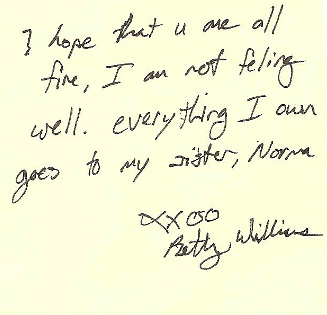 I hope that u are all
fine, I am not feling
well. everything I own
goes to my sister, Norma
XXOO
Betty Williams